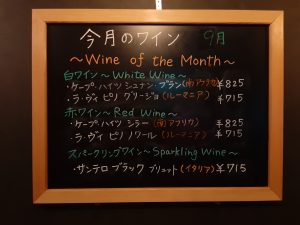 今月のワイン 9月
～Wine of the Month～
白ワイン～White Wine～
・ケープ・ハイツ シュナン・ブラン(南アフリカ) ￥825
・ラ・ヴィ ピノ グリージョ(ルーマニア) ￥715
赤ワイン～Red Wine～
・ケープ・ハイツ シラー (南アフリカ) ￥825
・ラ・ヴィ ピノ ノワール(ルーマニア) ￥715
スパークリングワイン～Sparkling Wine～
・サンテロ ブラック ブリュット(イタリア) ￥715